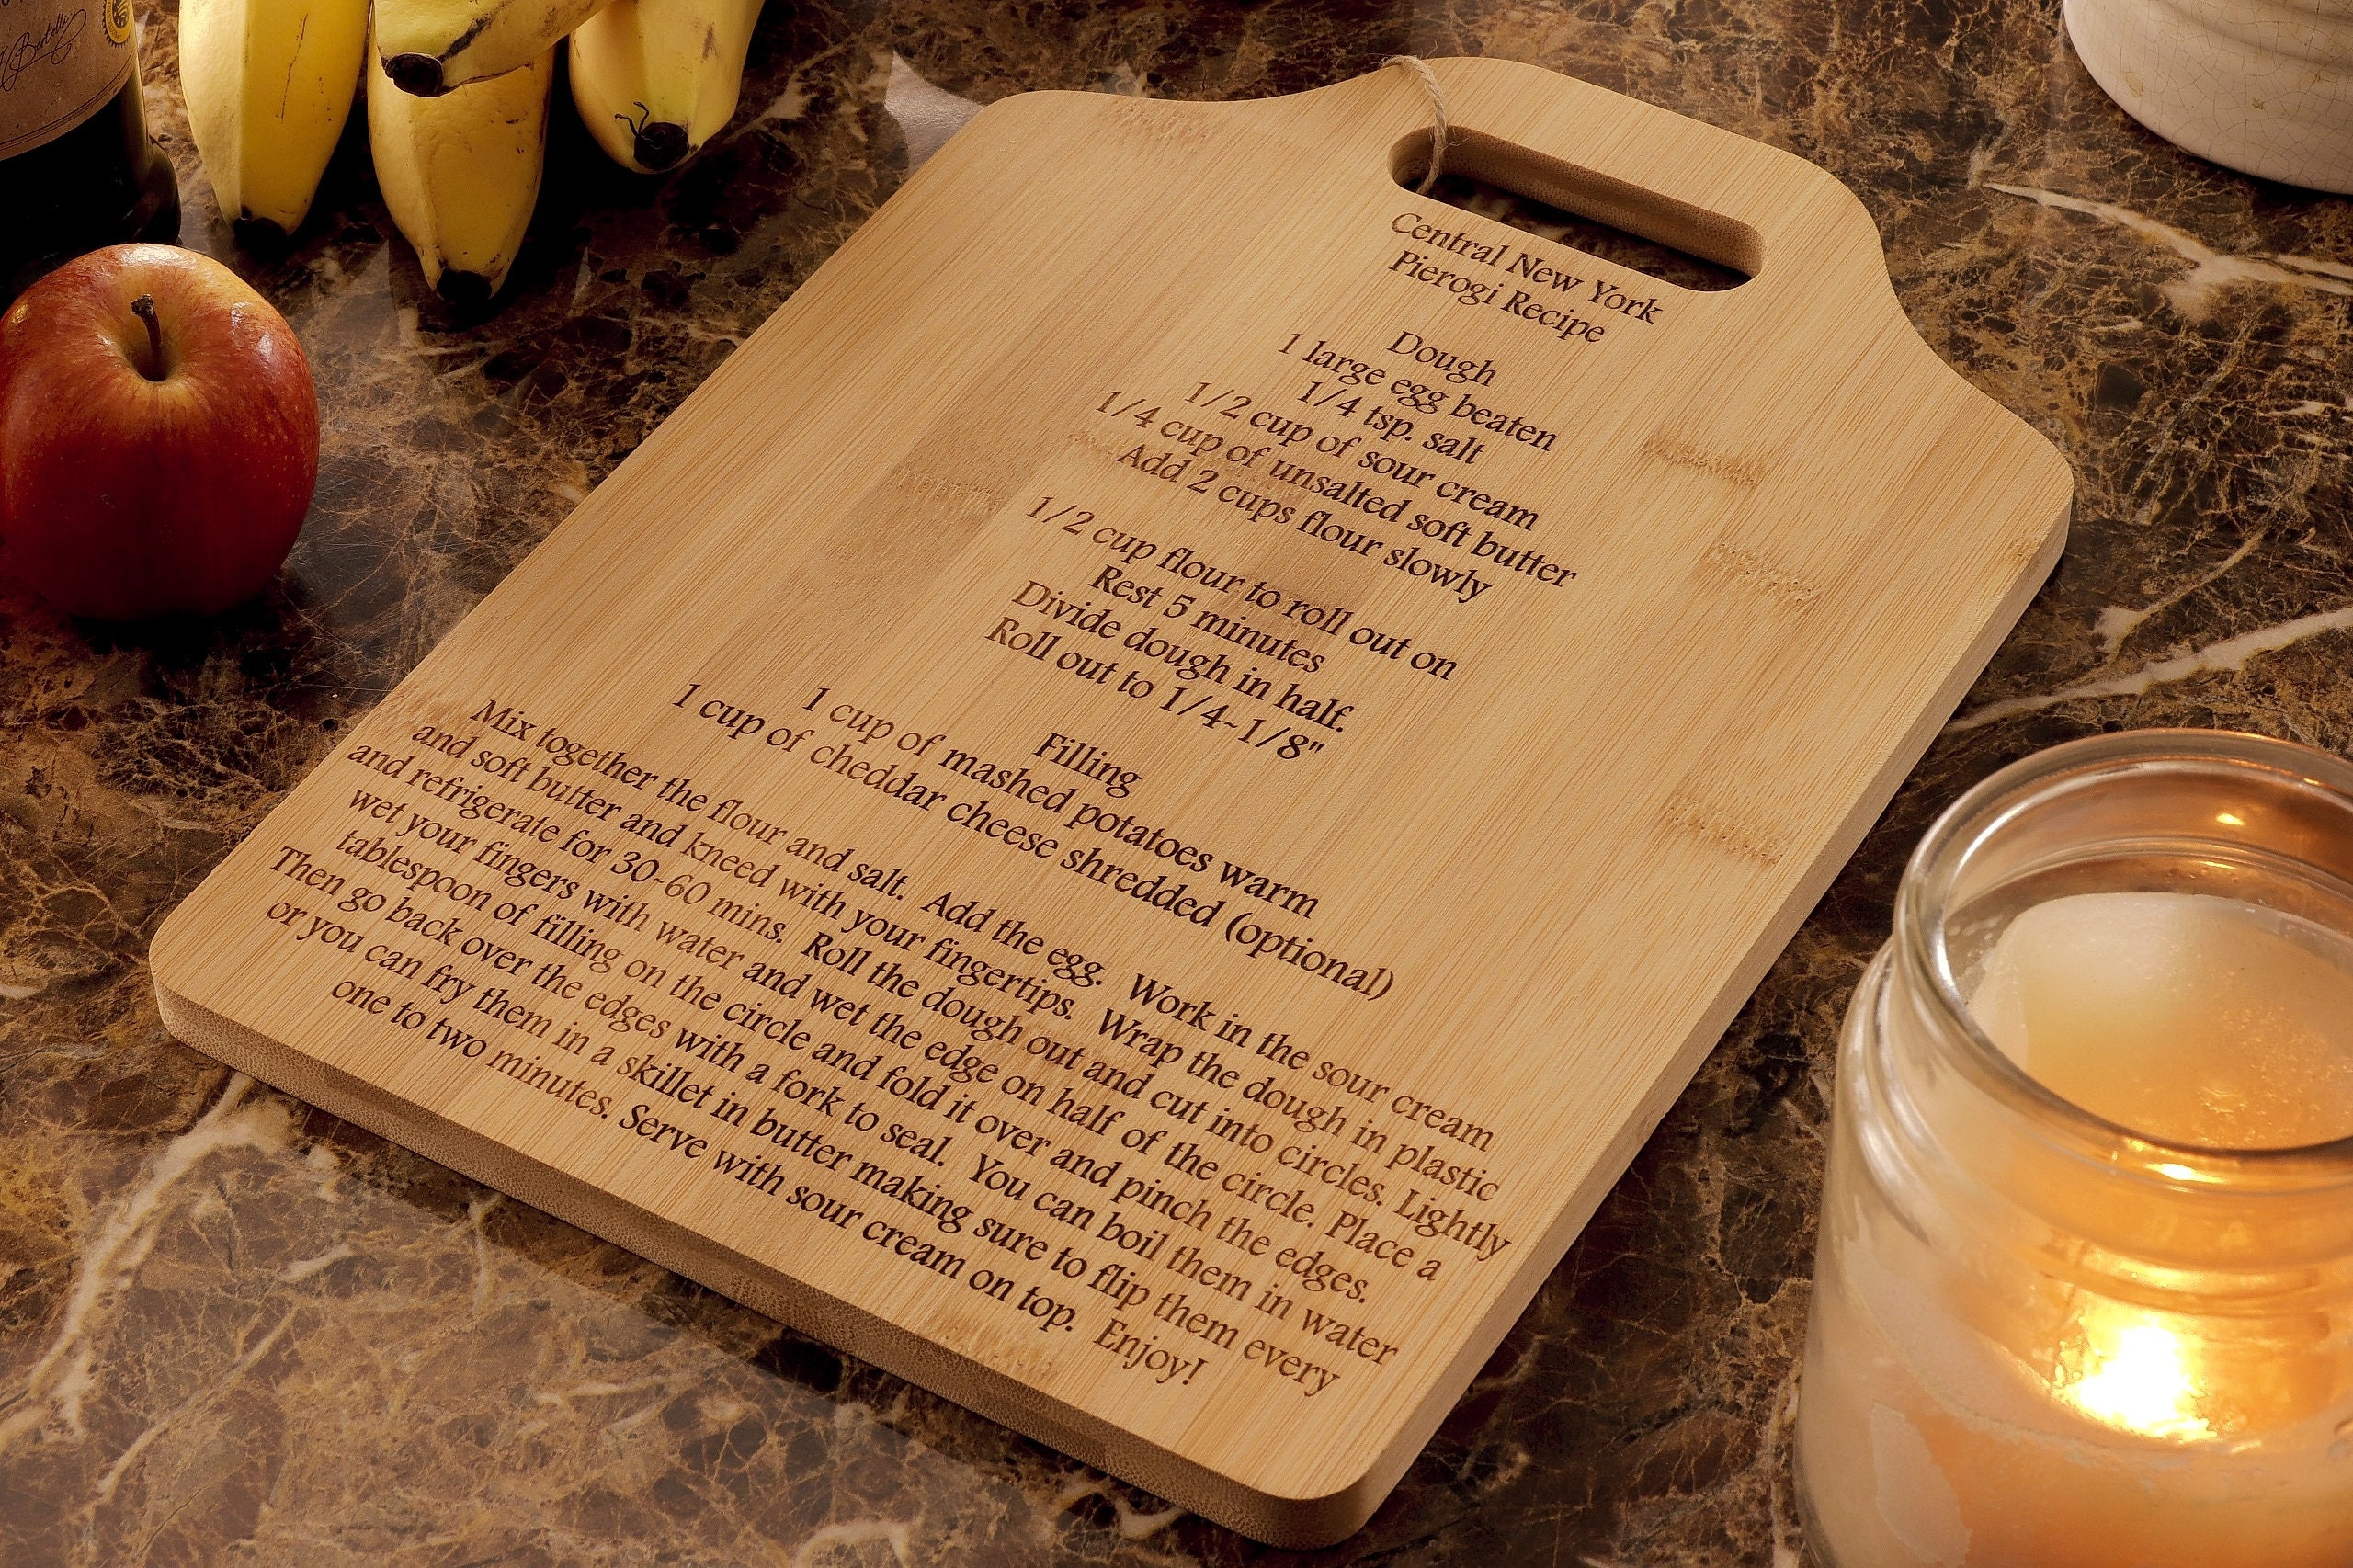 Central New York
Pierogi Recipe
Dough
1 large egg beaten
1/4 tsp. salt
1/2 cup of sour cream
1/4 cup of unsalted soft butter
Add 2 cups flour slowly
1/2 cup flour to roll out on
Rest 5 minutes
Divide dough in half.
Roll out to 1/4-1/8"
Filling
1 cup of mashed potatoes warm
1 cup of cheddar cheese shredded (optional)
Mix together the flour and salt. Add the egg. Work in the sour cream
and soft butter and kneed with your fingertips. Wrap the dough in plastic
and refrigerate for 30-60 mins. Roll the dough out and cut into circles. Lightly
wet your fingers with water and wet the edge on half of the circle. Place a
tablespoon of filling on the circle and fold it over and pinch the edges.
Then go back over the edges with a fork to seal. You can boil them in water
or you can fry them in a skillet in butter making sure to flip them every
one to two minutes. Serve with sour cream on top. Enjoy!